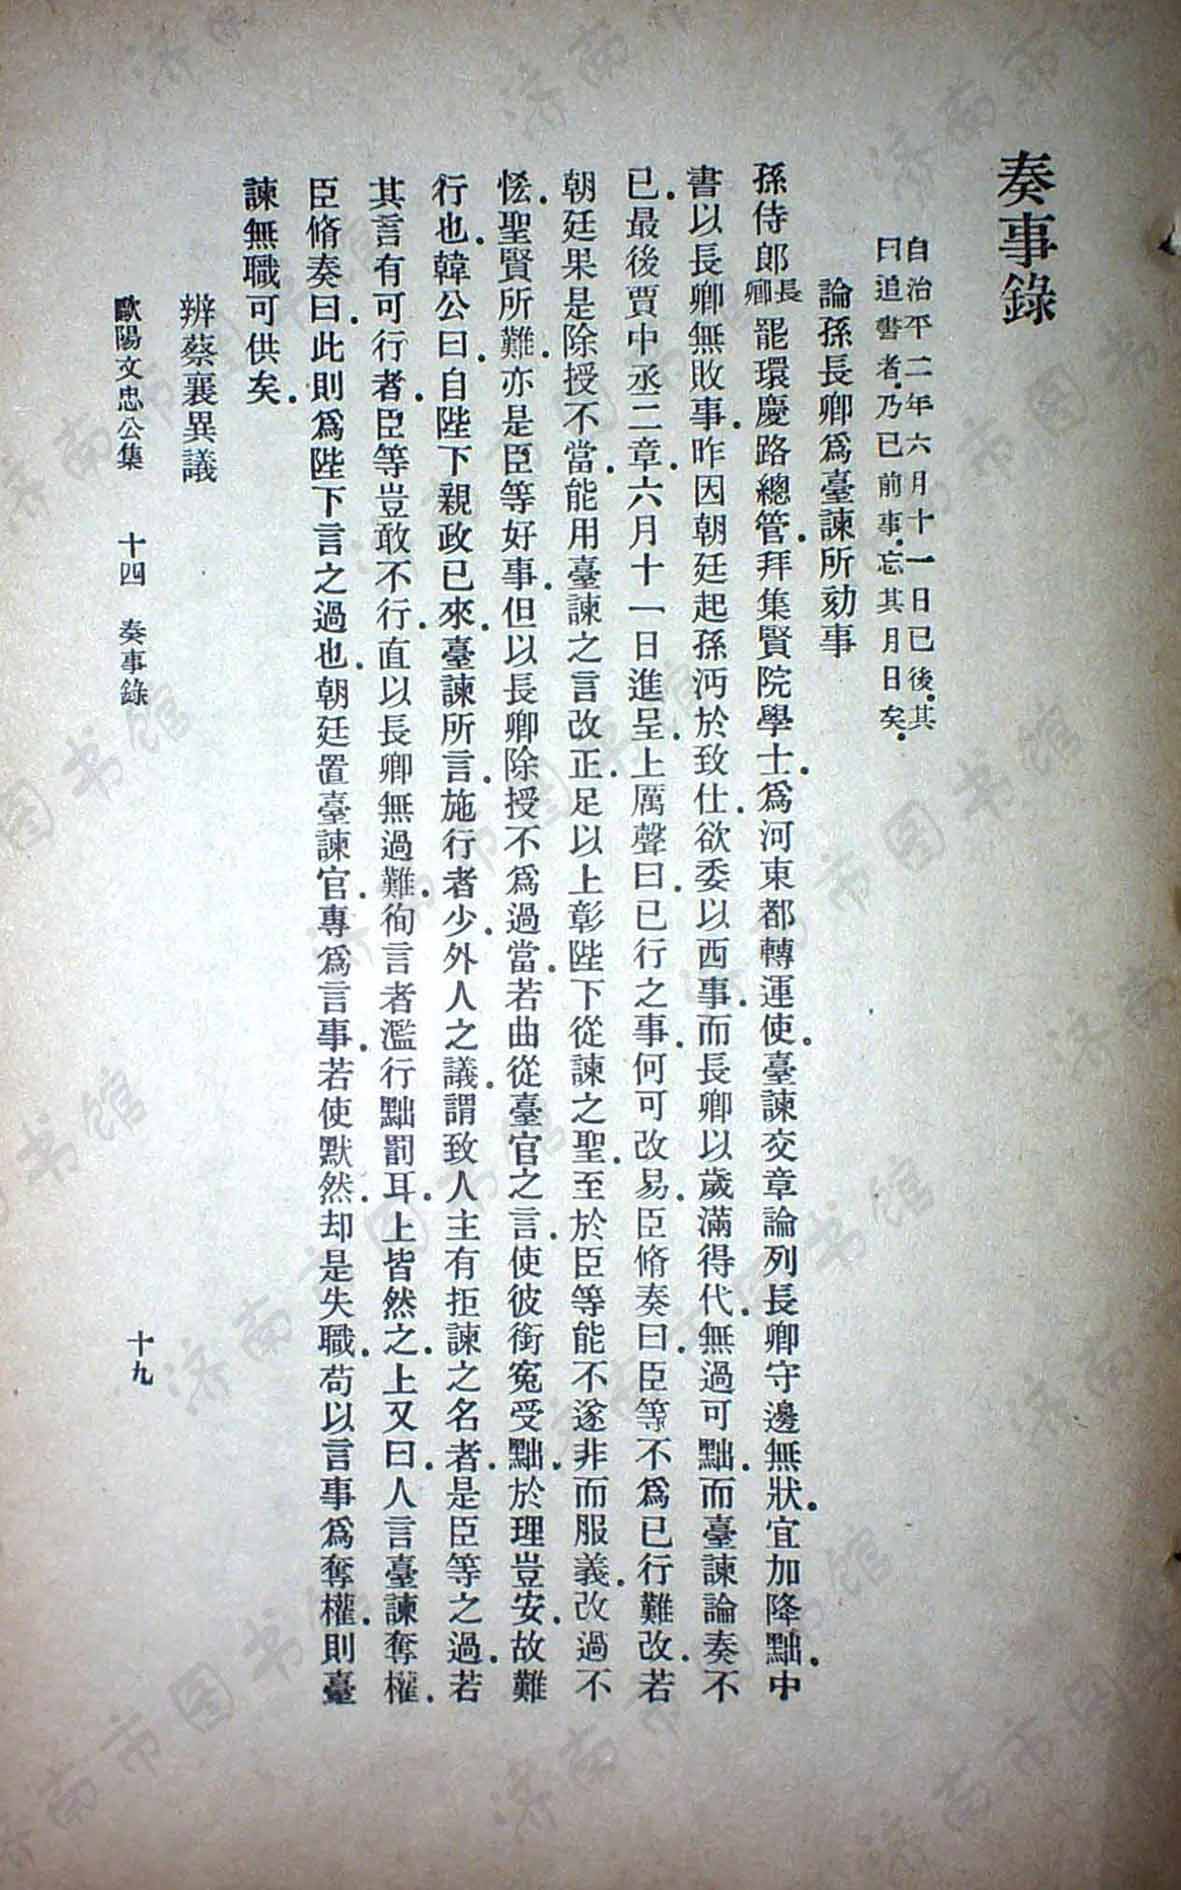 奏事錄
自治平二年六月十一日已後。其
日追書者。乃已前事。忘其月日矣。
論孫長卿爲臺諫所劾事
孫侍郎長卿罷環慶路總管。拜集賢院學士。爲河東都轉運使。臺諫交章論列長卿守邊無狀。宜加降黜。中
書以長卿無敗事。昨因朝廷起孫沔於致仕。欲委以西事。而長卿以歲滿得代。無過可黜。而臺諫論奏不
已。最後賈中丞二章。六月十一日進呈。上厲聲曰。已行之事。何可改易。臣脩奏曰。臣等不爲已行難改。若
朝廷果是除授不當。能用臺諫之言改正。足以上彰陛下從諫之聖。至於臣等能不遂非而服義。改過不
恡。聖賢所難。亦是臣等好事。但以長卿除授不爲過當。若曲從臺官之言。使彼銜寃受黜。於理豈安。故難
行也。韓公曰。自陛下親政已來。臺諫所言。施行者少。外人之議。謂致人主有拒諫之名者。是臣等之過。若
其言有可行者。臣等豈敢不行。直以長卿無過。難徇言者濫行黜罰耳。上皆然之。上又曰。人言臺諫奪權。
臣脩奏曰。此則爲陛下言之過也。朝廷置臺諫官。專爲言事。若使默然。却是失職。苟以言事爲奪權。則臺
諫無職可供矣。
辨蔡襄異議
歐陽文忠公集 十四 奏事錄 十九
济南市图书馆